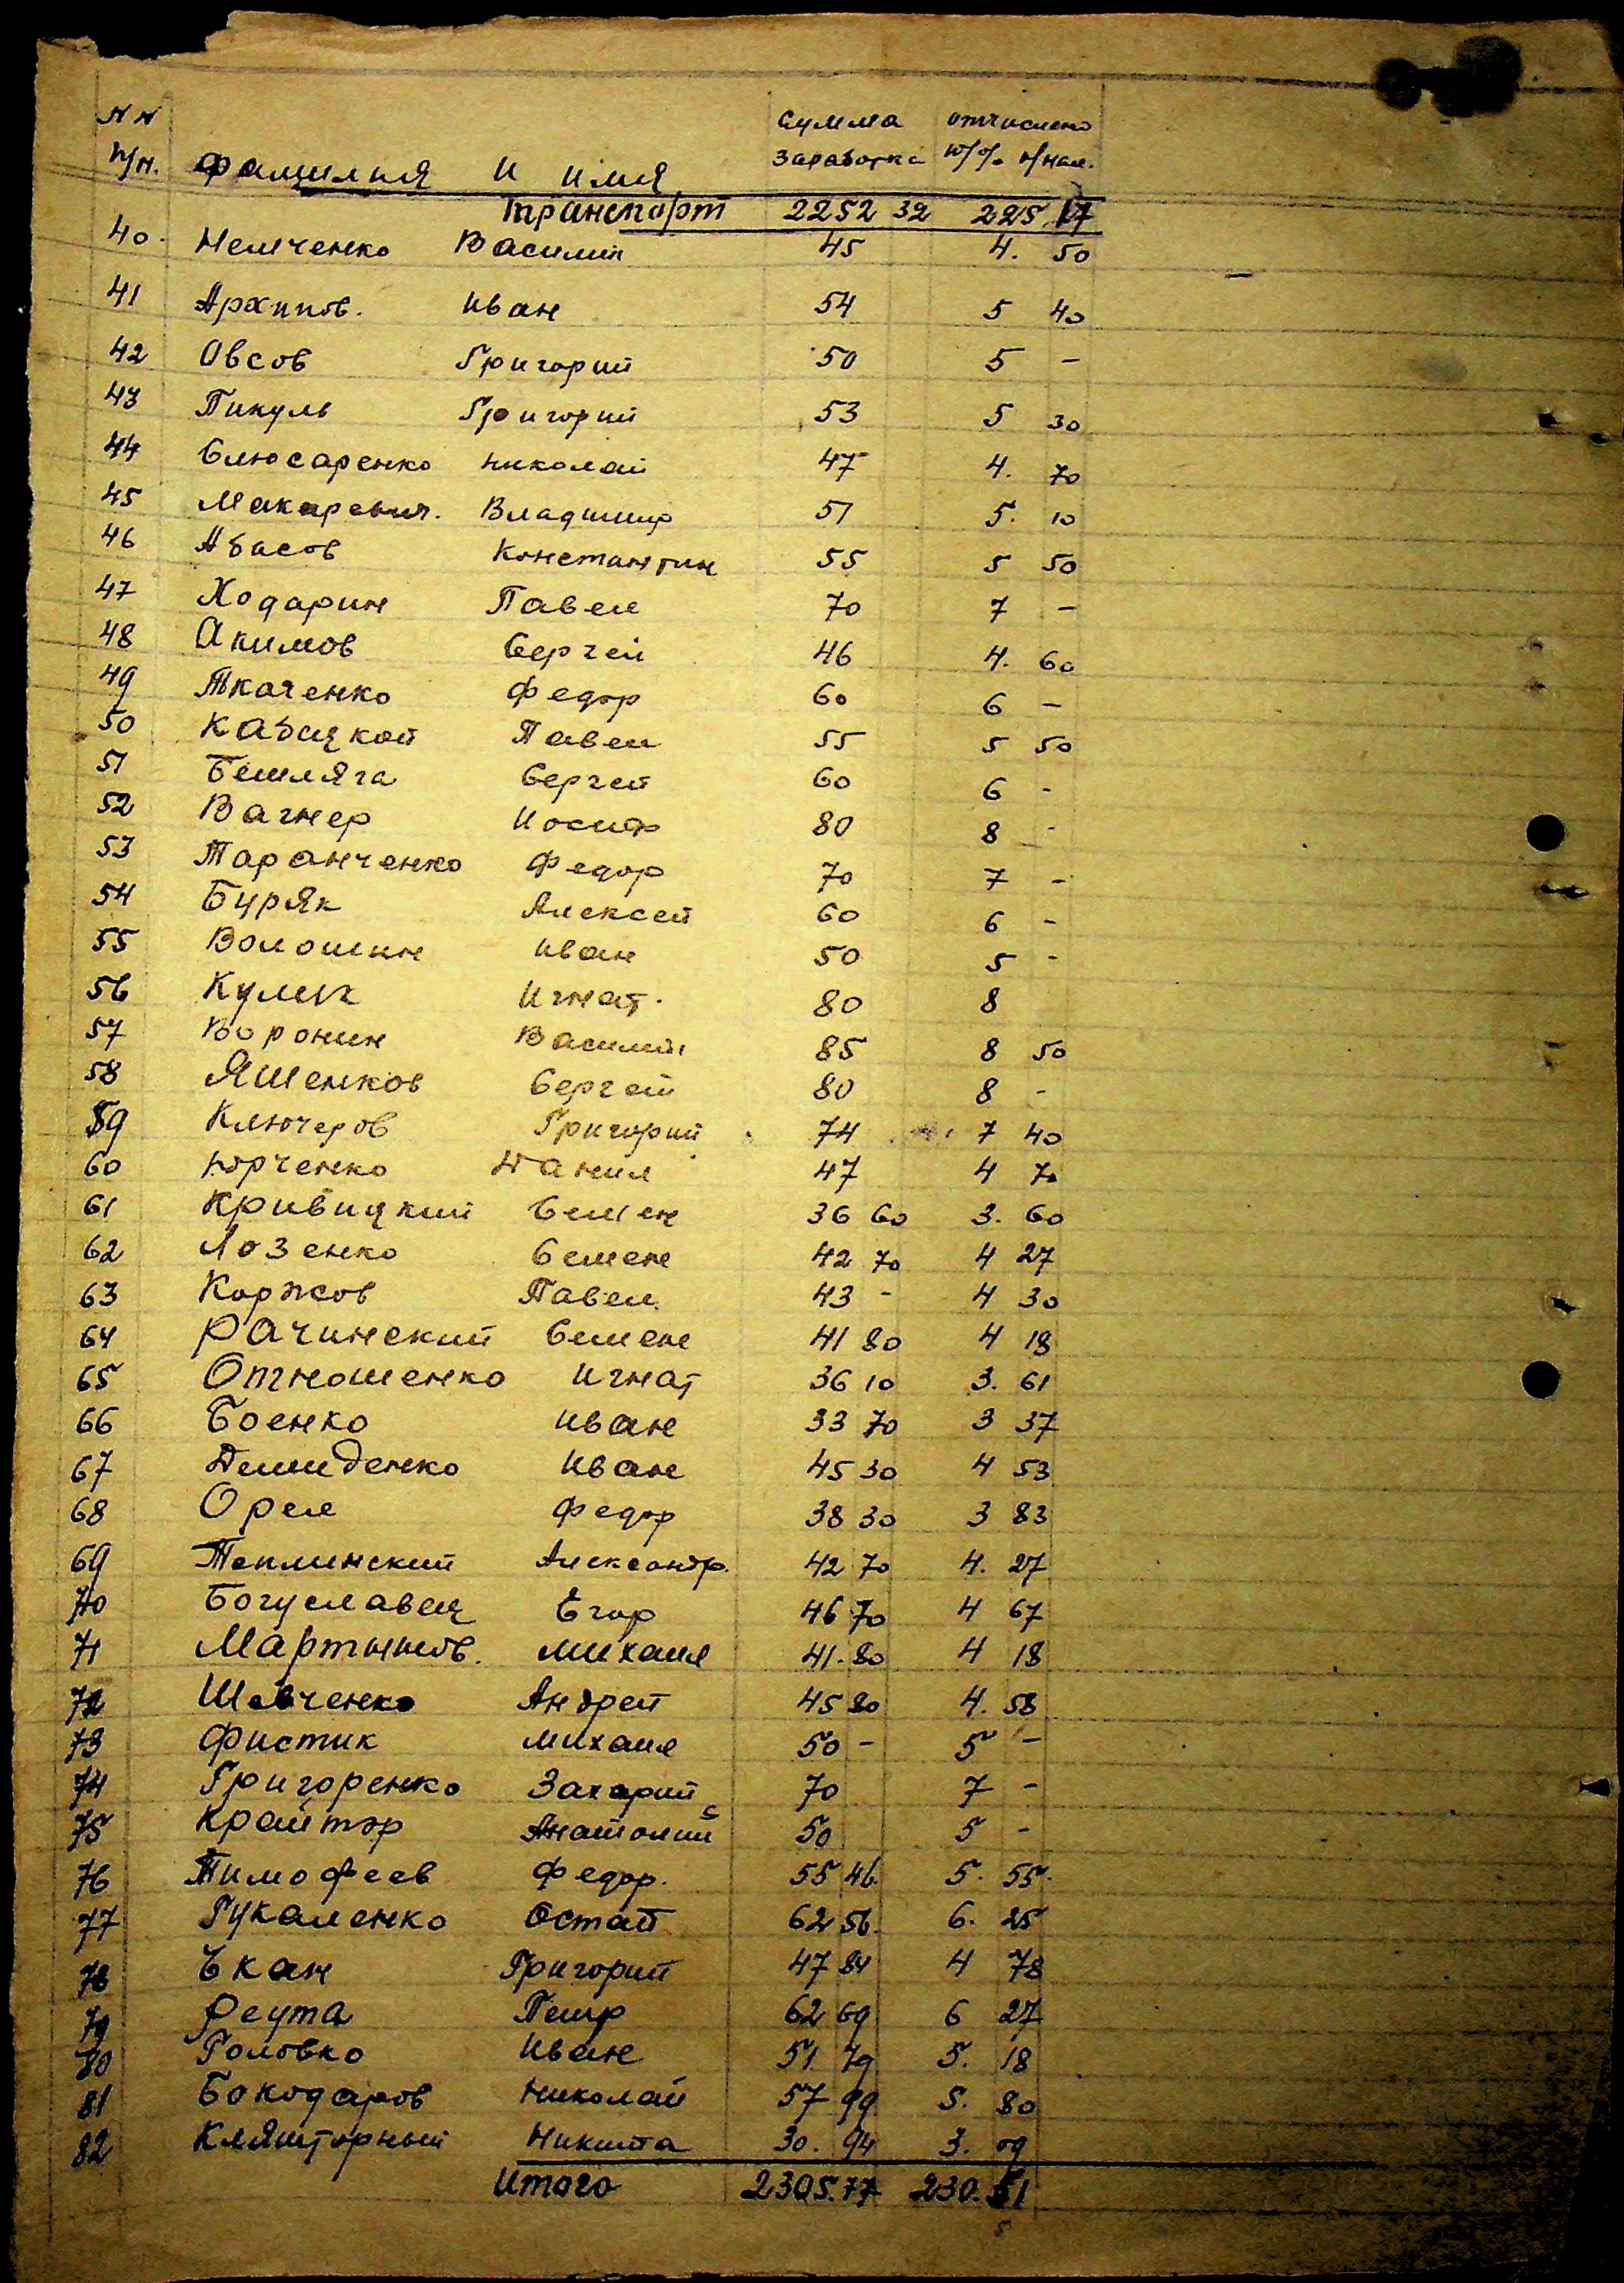 NN Сумма отчислено
п/п. Фамилия и имя заработка 10/% п/нал.
Транспорт 2252 32 225 17
40. Немченко Василий 45 4. 50
41 Архипов. Иван 54 5 40
42 Овсов Григорий 50 5 –
43 Пикуль Григорий 53 5 30
44 Слюсаренко Николай 47 4. 70
45 Макаревич. Владимир 51 5. 10
46 Абасов Константин 55 5 50
47 Ходарин Павел 70 7 –
48 Акимов Сергей 46 4. 60
49 Ткаченко Федор 60 6 –
50 Казицкой Павел 55 5 50
51 Бешляга Сергей 60 6 -
52 Вагнер Иосиф 80 8 -
53 Таранченко Федор 70 7 –
54 Буряк Алексей 60 6 –
55 Волошин Иван 50 5 -
56 Кулик Игнат. 80 8
57 Воронин Василий 85 8 50
58 Яшенков Сергей 80 8 -
59 Ключеров Григорий 74 7 40
60 Юрченко Данил 47 4 70
61 Кривицкий Семен 36 60 3. 60
62 Лозенко Семен 42 70 4 27
63 Коржов Павел 43 - 4 30
64 Рачинский Семен 41 80 4 18
65 Игнат 36 10 3. 61
66 Боенко Иван 33 70 3 37
67 Демиденко Иван 45 30 4 53
68 Орел Федор 38 30 3 83
69 Теплинский Александр. 42 70 4. 27
70 Богуславец Егор 46 70 4 67
71 Мартынов. Михаил 41. 80 4 18
72 Шевченко Андрей 45 80 4. 58
73 Фистик Михаил 50 – 5 –
74 Григоренко Захарий 70 7 –
75 Крайтор Анатолий 50 5 –
76 Тимофеев Федор. 55 46. 5. 55.
77 Гукаленко Остап 62 56. 6. 25
78 Григорий 47 84 4 78
79 Реута Петр 62 69 6 27
80 Головко Иван 51. 79 5. 18
81 Бокодаров Николай 57 99 5. 80
82 Кляшторный Никита 30. 94 3. 09
Итого 2305.77 230. 51